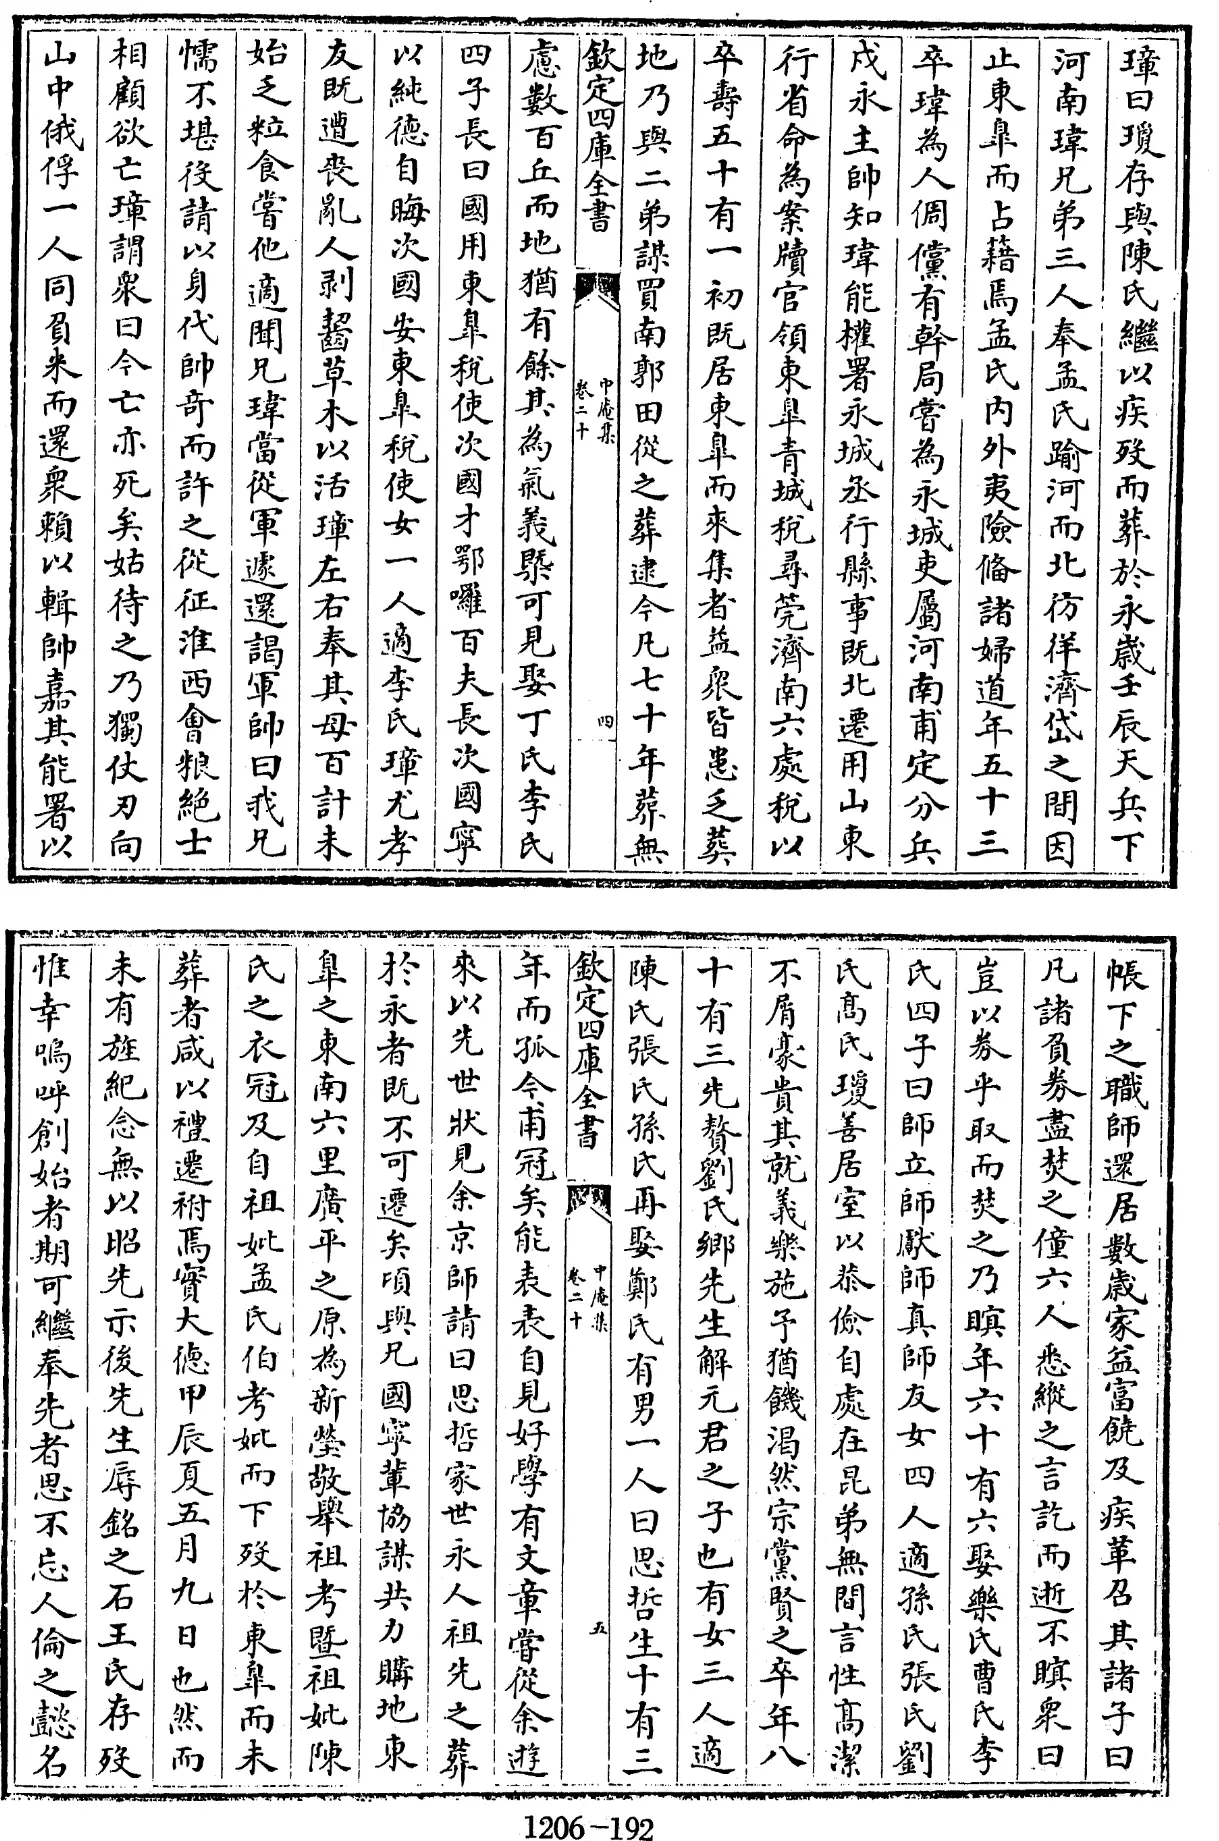 璋曰瓊存與陳氏繼以疾歿而葬於永歲壬辰天兵下
河南瑋兄弟三人奉孟氏踰河而北彷徉濟岱之間因
止東臯而占籍焉孟氏內外夷險脩諸婦道年五十三
卒瑋為人倜儻有幹局嘗為永城吏屬河南甫定分兵
戍永主帥知瑋能權署永城丞行縣事既北遷用山東
行省命為案牘官領東臯青城稅尋莞濟南六處稅以
卒壽五十有一初既居東臯而來集者益衆皆患乏葬
地乃與二弟謀買南郭田從之葬逮今凡七十年葬無
欽定四庫全書
中庵集
卷二十
四
慮數百丘而地猶有餘其為氣義槩可見娶丁氏李氏
四子長曰國用東臯稅使次國才鄂囉百夫長次國寧
以純德自晦次國安東臯稅使女一人適李氏璋尤孝
友既遭喪亂人剥齧草木以活璋左右奉其母百計未
始乏粒食嘗他適聞兄瑋當從軍遽還謁軍帥曰我兄
懦不堪役請以身代帥奇而許之從征淮西會粮絶士
相顧欲亡璋謂衆曰今亡亦死矣姑待之乃獨仗刃向
山中俄俘一人同負米而還衆賴以輯帥嘉其能署以
帳下之職師還居數歲家益富饒及疾革召其諸子曰
凡諸負券盡焚之僮六人悉縱之言訖而逝不瞑衆曰
豈以券乎取而焚之乃瞑年六十有六娶樂氏曹氏李
氏四子曰師立師猷師真師友女四人適孫氏張氏劉
氏髙氏瓊善居室以恭儉自處在昆弟無間言性髙潔
不屑豪貴其就義樂施予猶饑渴然宗黨賢之卒年八
十有三先贅劉氏鄉先生解元君之子也有女三人適
陳氏張氏孫氏再娶鄭氏有男一人曰思哲生十有三
欽定四庫全書
中庵集
卷二十
五
年而孤今甫冠矣能表表自見好學有文章嘗從余遊
來以先世狀見余京師請曰思哲家世永人祖先之葬
於永者既不可遷矣頃與兄國寧輩協謀共力購地東
臯之東南六里廣平之原為新塋敬舉祖考暨祖妣陳
氏之衣冠及自祖妣孟氏伯考妣而下歿於東臯而未
葬者咸以禮遷祔焉實大德甲辰夏五月九日也然而
未有旌紀念無以昭先示後先生辱銘之石王氏存歿
惟幸嗚呼創始者期可繼奉先者思不忘人倫之懿名
1206-192